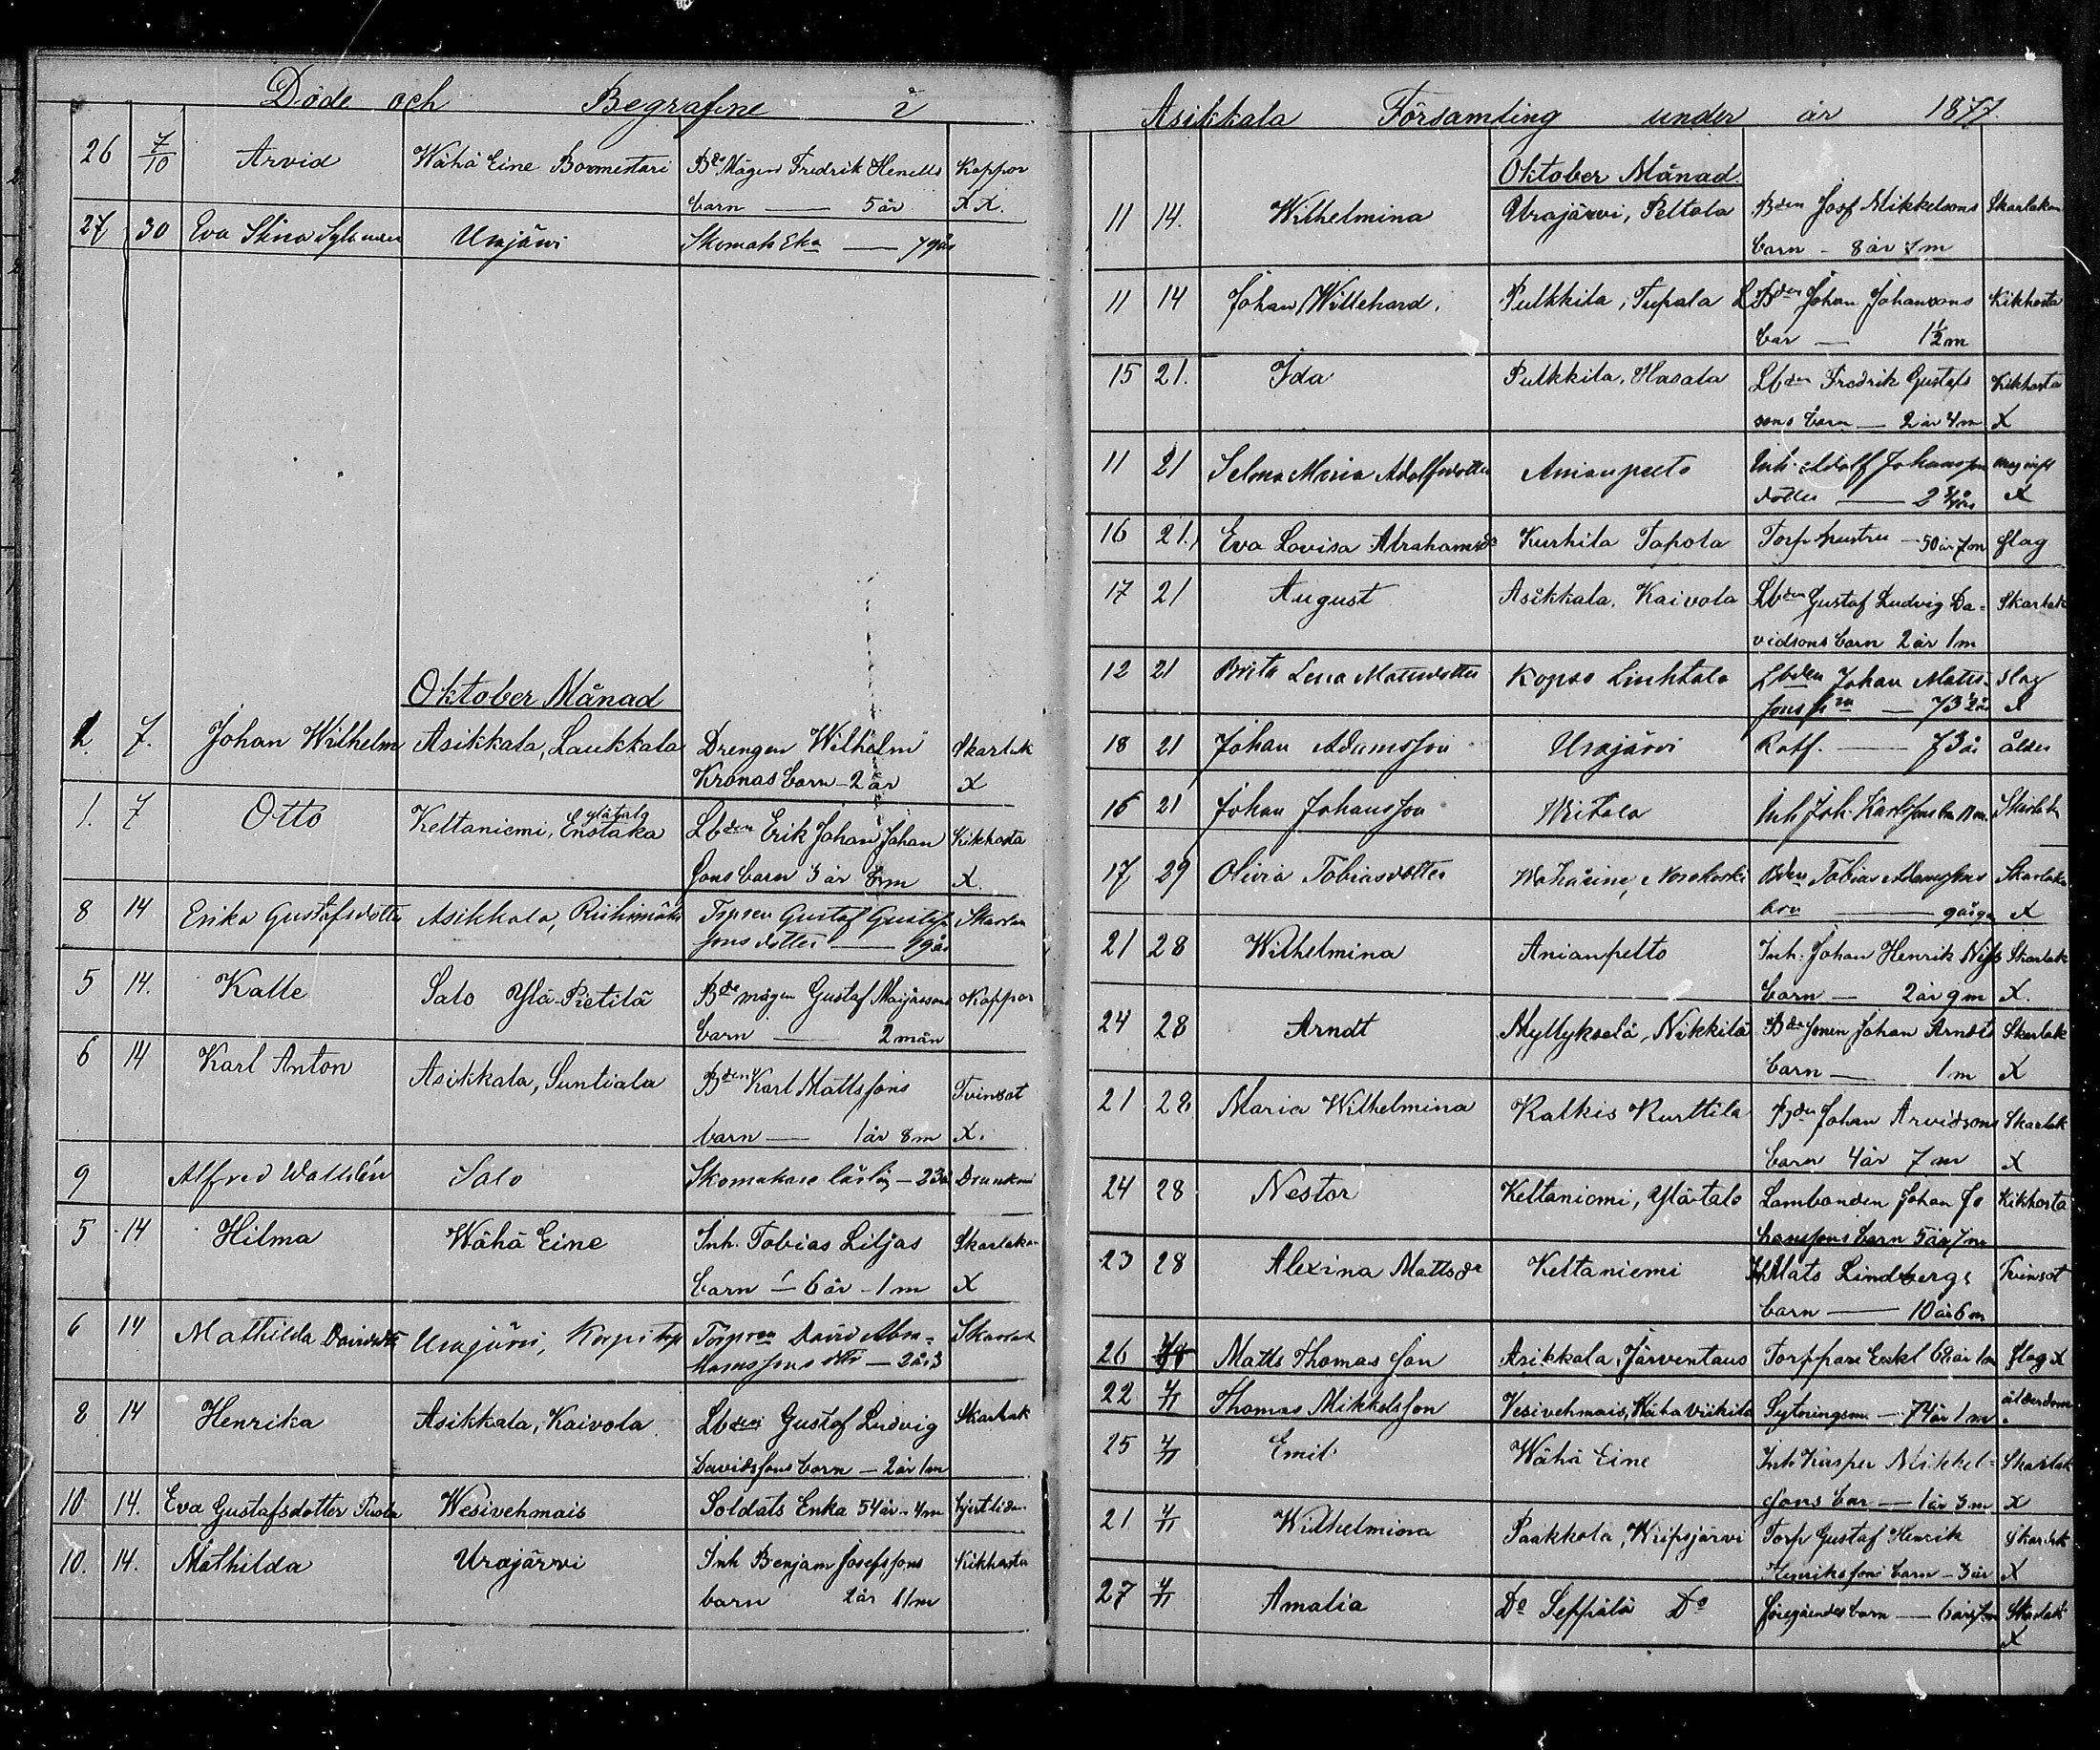 Döde och Begrafne i
26 7/10 Arvid Wähä Eine Bde Mågen Fredrik Henells Koppor
barn — 5 år XX.
27 30 Eva Urajärvi Skomak Eka — 79 år
Oktober Månad
2. 7. Johan Wilhelm Asikkala, Laukkala Drengen Wilhelm Skarlak
Kronas barn - 2 år X
1. 7 Otto Keltaniemi, Enstaka ylätalo Lbden Erik Johan Johan Kikhosta
sons barn 3 år 6 m X.
8 14 Erika Gustafsdotter Asikkala, Riihimäki Tprsen Gustaf Gustaf Skarlak
sons dotter — 9 år
5 14. Kalle Salo Ylä-Pietilä Bde mågen Gustaf Maijassons Koppor
barn — 2 mån
6 14 Karl Anton Asikkala, Suntiala Bden Karl Mattssons Tvinsot
barn — 1 år 8 m X.
9 Alfred Walldén Salo Skomakare lärling — 23 år Drunknid
5 14 Hilma Wähä Eine Inh. Tobias Liljas Skarlakan
barn — 6 år - 1 m X
6 14 Mathilda Davidsdtr Urajärvi, Korpi trp Torpren David Abra- Skarlak
hamssons dttr — 2 år 3
8 14 Henrika Asikkala, Kaivola Lbden Gustaf Ludvig Skarlak
Davidssons barn — 2 år 1 m
10 14. Eva Gustafsdotter Wesivehmais Soldats Enka 54 år - 4 m
10. 14. Mathilda Urajärvi Inh Benjam Josefssons Kikhosta
barn 2 år 11 m
Asikkala Församling under år 1877.
Oktober Månad.
11 14. Wilhelmina Urajärvi, Peltola Bden Josf Mikkelsons Skarlakan
barn - 8 år 7 m
11 14 Johan Willehard. Pulkkila, Tupala LBden Johan Johansons Kikhosta
bar — 1½ m
15 21. Ida Pulkkila, Hasala Lbden Fredrik Gustafs Kikhosta
sons barn — 2 år 4 m X
11 21 Selma Maria Adolfsdotter Anianpelto Inh. Adolf Johansson
dotter — 2 ¾ år X
16 21. Eva Lovisa Abrahamsdr Kurhila Tapola Torp hustru — 50 år 7 m slag
17 21 August Asikkala, Kaivola Lbden Gustaf Ludvig Da- Skarlak
vidsons barn 2 år 1 m
12 21 Brita Lena Mattsdotter Kopso Linhtala Lbden Johan Matts- slag
sons — 73 ½ år X
18 21 Johan Adamsson Urajärvi Rotf. — 73 år ålder
16 21 Johan Johansson Writala Inh Joh. Karlssons Skarlak
17 29 Olivia Tobiasdotter Bden Tobias Adamssons Skarlak
brn — 9 år X
21 28 Wilhelmina Anianpelto Inh. Johan Henrik Skarlak
barn — 2 år 9 m X.
24 28 Arndt Myllykselä, Nikkilä Bdesonen Johan Arndts Skarlak
barn — 1 m X
21 28 Maria Wilhelmina Kalkis Kurttila Johan Arvidsons Skarlak
barn 4 år 7 m X
24 28 Nestor Keltaniemi, Ylätalo Lambonden Johan Jo Kikhosta
hanssons barn 5 år 7 m
23 28 Alexina Mattsdr Keltaniemi Mats Lindbergs Tvinsot
barn — 10 år 6 m
26 Matts Thomasson Asikkala, Järventaus Torppare Enkl 68 år 1 m slag X
22 4/11 Thomas Mikkelsson Vesivehmais, Wähä Viikilä Sytningsm. — 74 år 1 m ålderdom
25 4/11 Emil Wähä Eine Inh Kasper Mikkel- Skarlak
sons bar — 1 år 3 m X
21 4/11 Wilhelmina Paakkola, Wiipsjärvi Torp Gustaf Henrik Skarlak
Henrikssons barn — 3 år X
27 4/11 Amalia Do Seppälä Do föregåendes barn — 6 år 7 m Skarlak
X